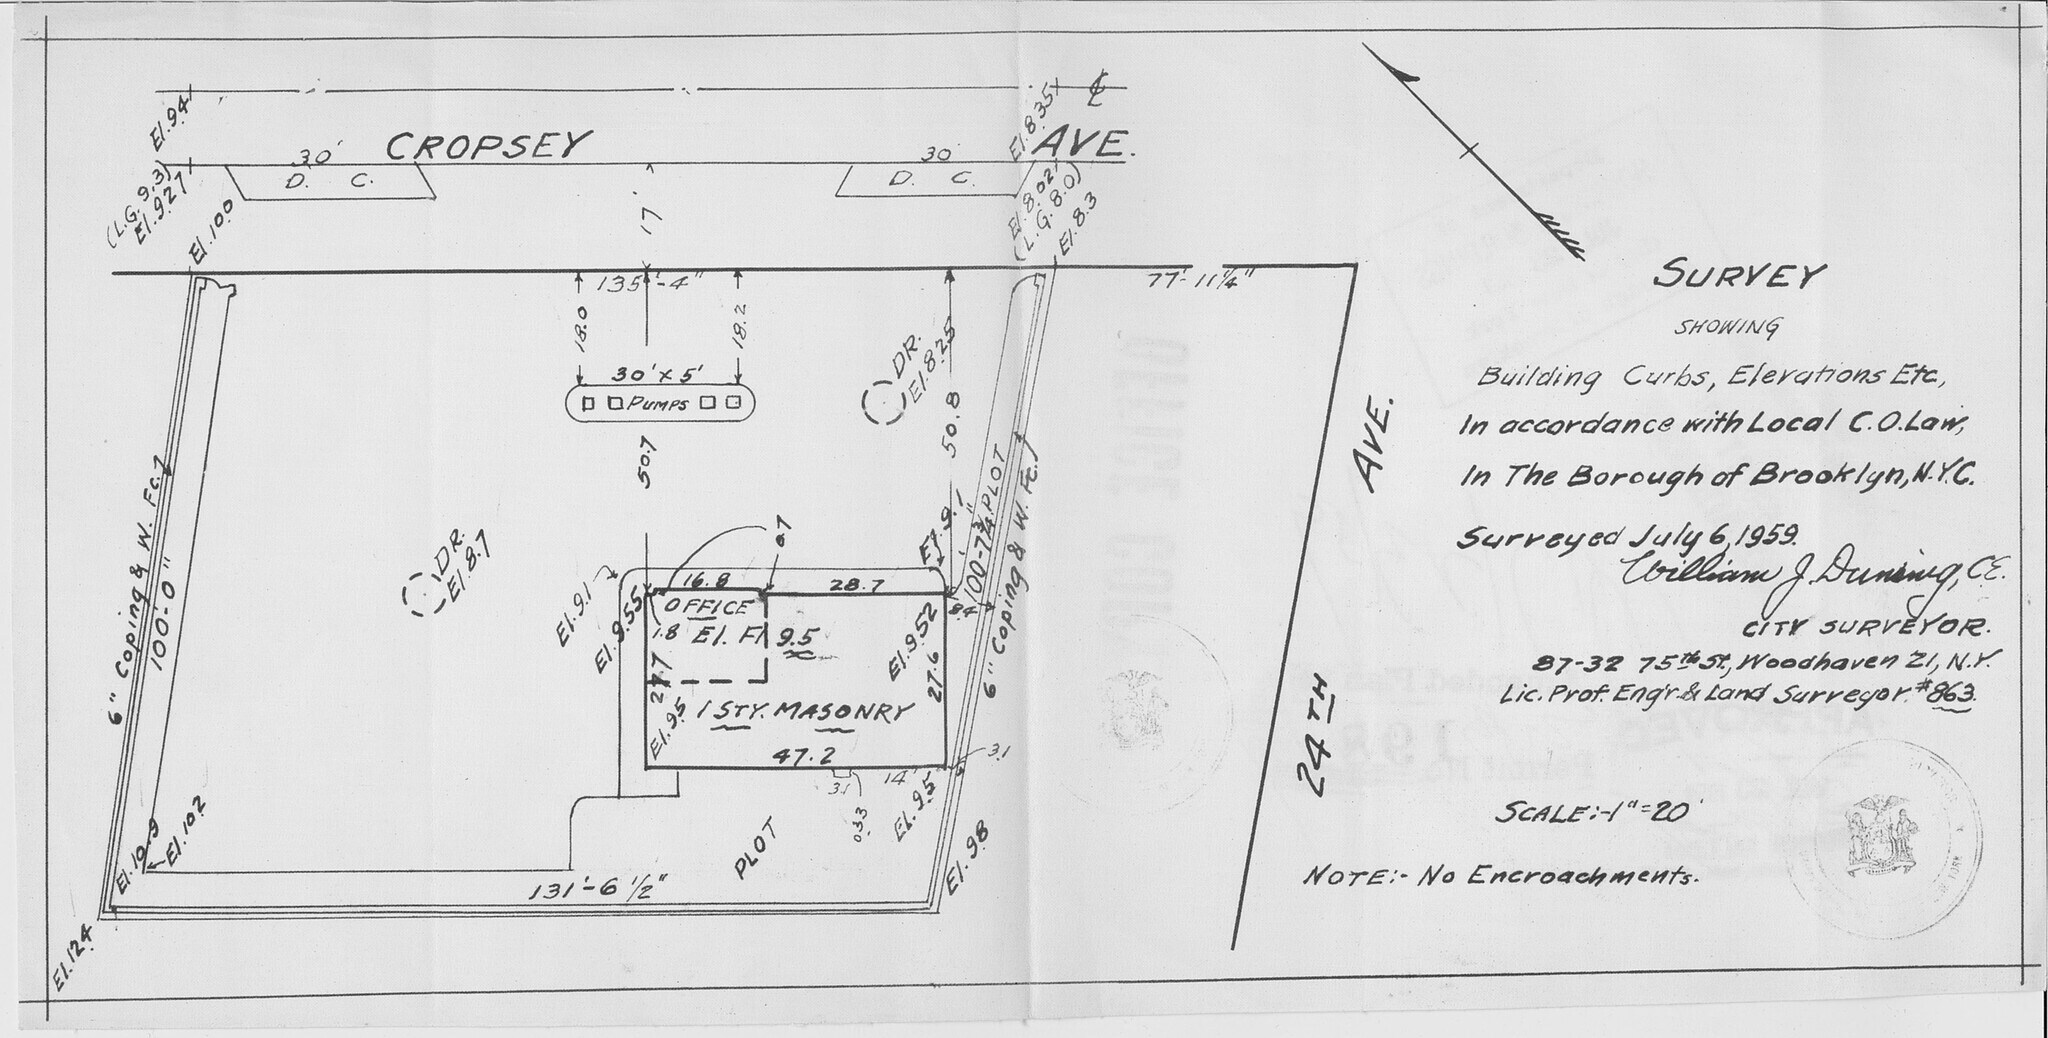 ℄
CROPSEY AVE.
El. 9.41
(L.G. 9.3)
El. 9.27
El. 10.0
30'
D. C.
17'
30'
D. C.
El. 8.35
El. 8.02
(L.G. 8.0)
El. 8.3
135'-4"
77'-11¼"
18.0
18.2
30' x 5'
PUMPS
DR.
El. 8.25
50.7
50.8
DR.
El. 8.7
6" Coping & W. Fc.
100'-0"
100'-7¾"
PLOT
6" Coping & W. Fc.
0.7
El. 9.1
El. 9.1
16.8
28.7
El. 9.55
OFFICE
1.8
El. Fl 9.5
El. 9.52
8.4
27.7
27.6
El. 9.5
1 STY. MASONRY
47.2
3.1
14'
3.1
0.33
El. 9.5
PLOT
El. 10.9
El. 10.2
131'-6½"
El. 9.8
El. 12.4
24TH AVE.
SURVEY
SHOWING
Building Curbs, Elevations Etc,
In accordance with Local C.O. Law,
In The Borough of Brooklyn, N.Y.C.
Surveyed July 6, 1959.
William J. Duning, C.E.
CITY SURVEYOR.
87-32 75th St., Woodhaven 21, N.Y.
Lic. Prof. Eng'r. & Land Surveyor #863
SCALE:-1"=20'
NOTE:- No Encroachments.